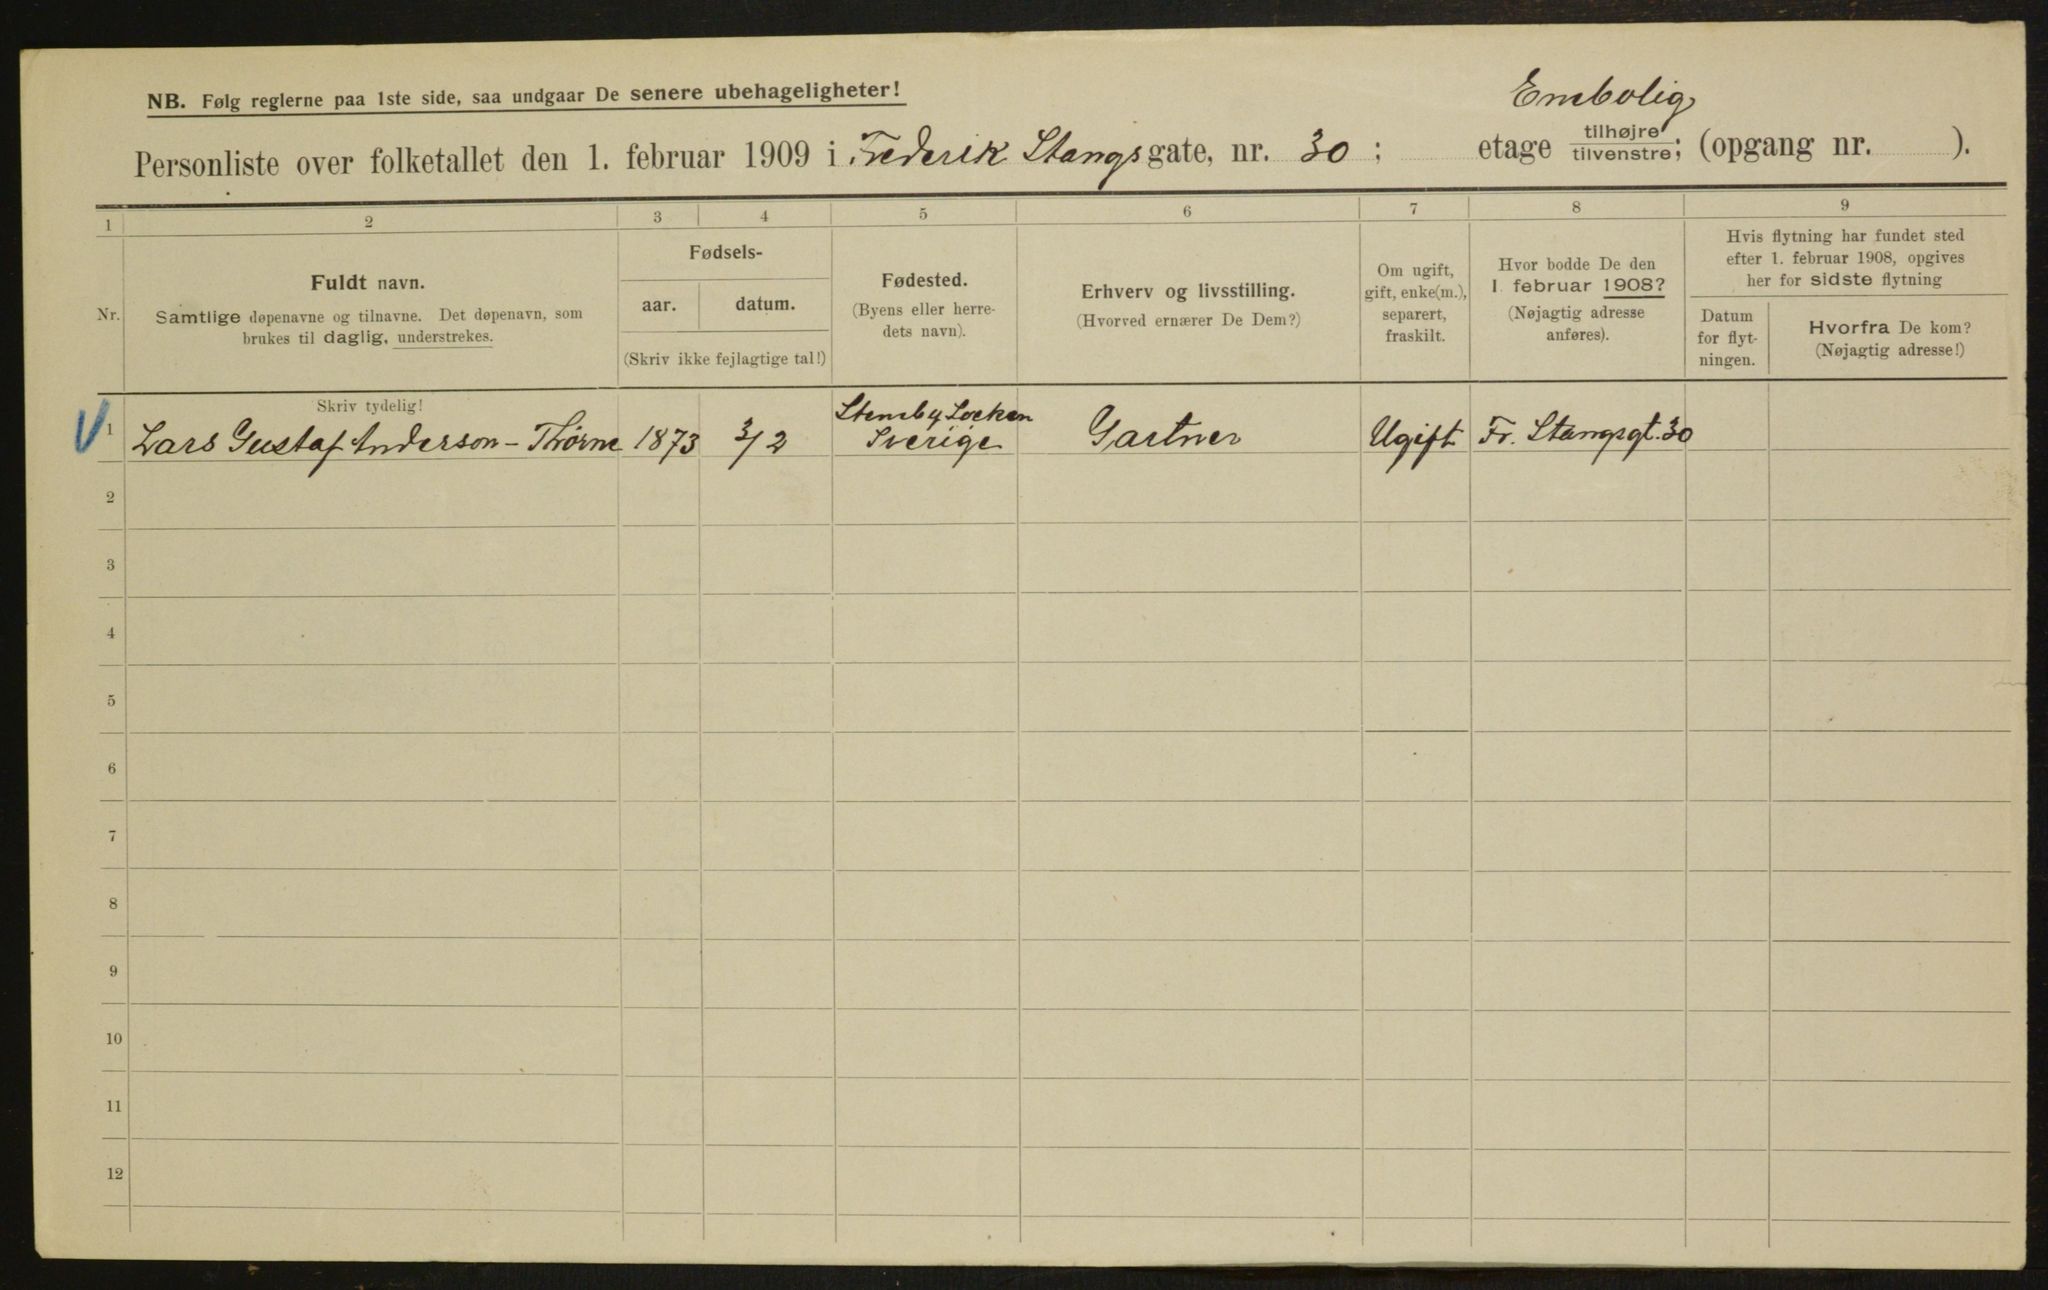 NB. Følg reglerne paa 1ste side, saa undgaar De senere ubehageligheter!
Enebolig
Personliste over folketallet den 1. februar 1909 i Frederik Stangs gate, nr. 30 ; etage tilhøjre tilvenstre; (opgang nr. ).
1 2 3 4 5 6 7 8 9
Nr.
Fuldt navn.
Samtlige døpenavne og tilnavne. Det døpenavn, som
brukes til daglig, understrekes.
Fødsels-
aar. datum.
(Skriv ikke fejlagtige tal!)
Fødested.
(Byens eller herre-
dets navn).
Erhverv og livsstilling.
(Hvorved ernærer De Dem?)
Om ugift,
gift, enke(m.),
separert,
fraskilt.
Hvor bodde De den
1. februar 1908?
(Nøjagtig adresse
anføres).
Hvis flytning har fundet sted
efter 1. februar 1908, opgives
her for sidste flytning
Datum
for flyt-
ningen.
Hvorfra De kom?
(Nøjagtig adresse!)
Skriv tydelig!
1 Lars Gustaf Anderson-Thørne 1873 3/2 Stenby Socken
Sverige Gartner Ugift Fr. Stangsgt. 30
2
3
4
5
6
7
8
9
10
11
12